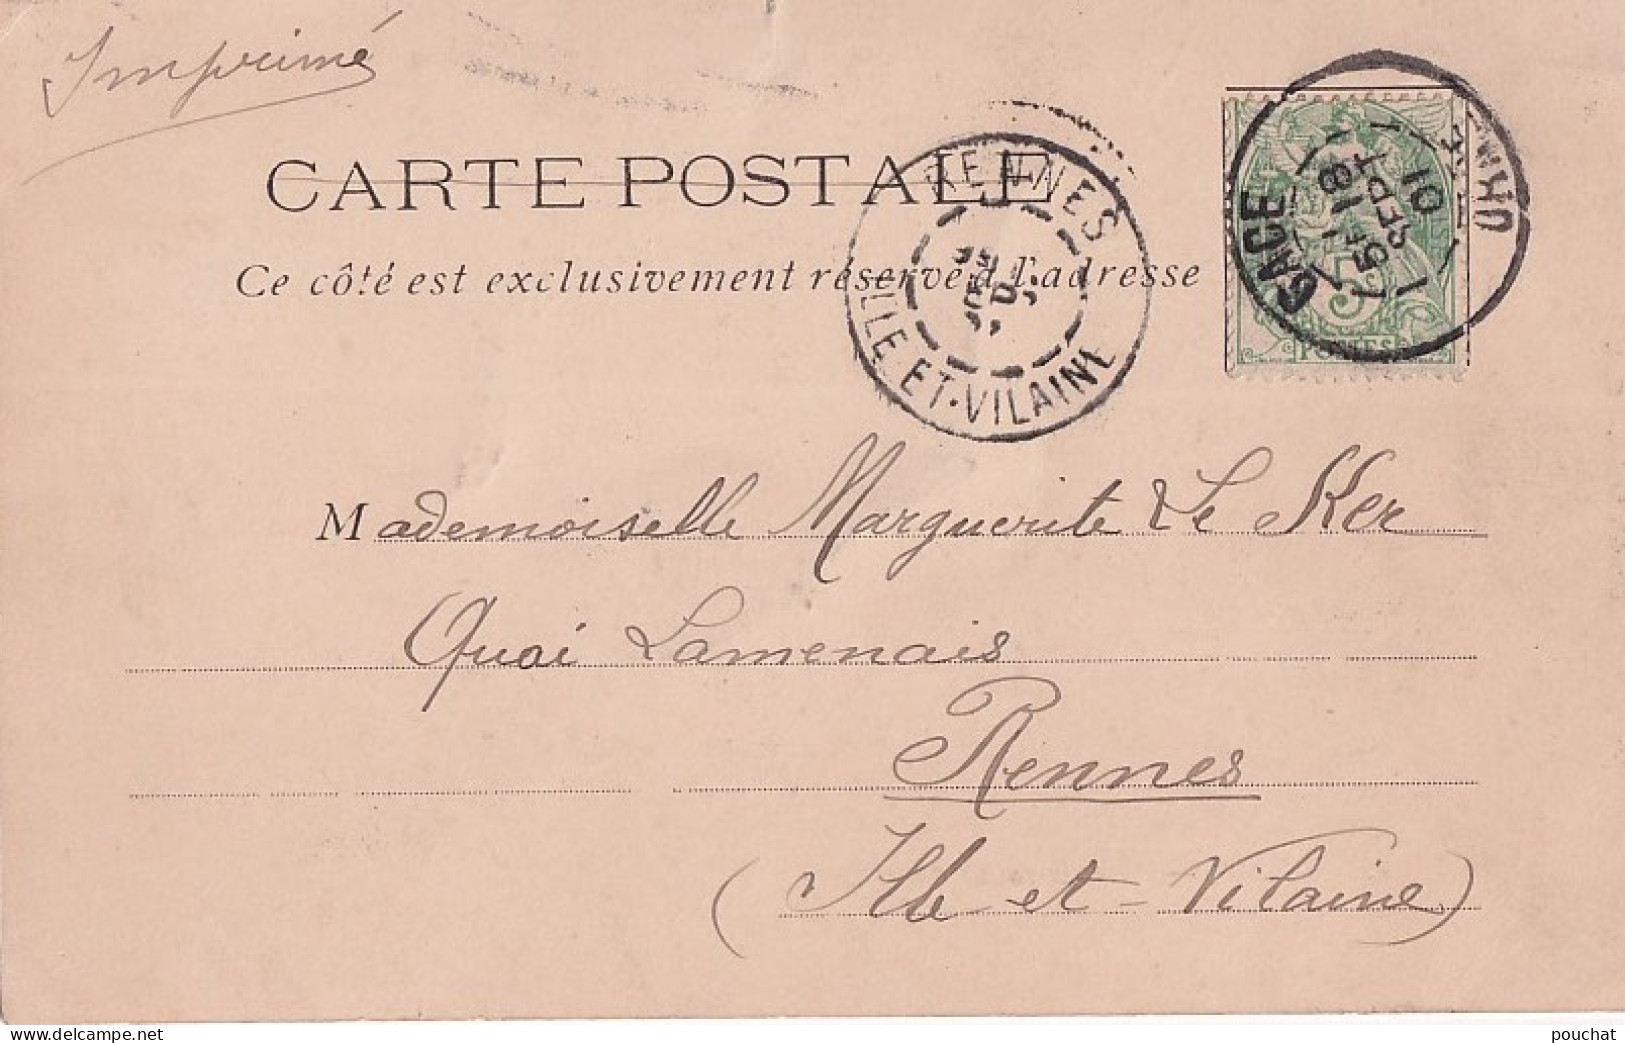 Imprimé
CARTE POSTALE
Ce côté est exclusivement réservé à l'adresse
RENNES
ILLE-ET-VILAINE
GACE
ORNE
18
5 SEPT
01
5
POSTES
Mademoiselle Marguerite Le Ker
Quai Lamenais
Rennes
(Ille et-Vilaine)
www.delcampe.net
pouchat